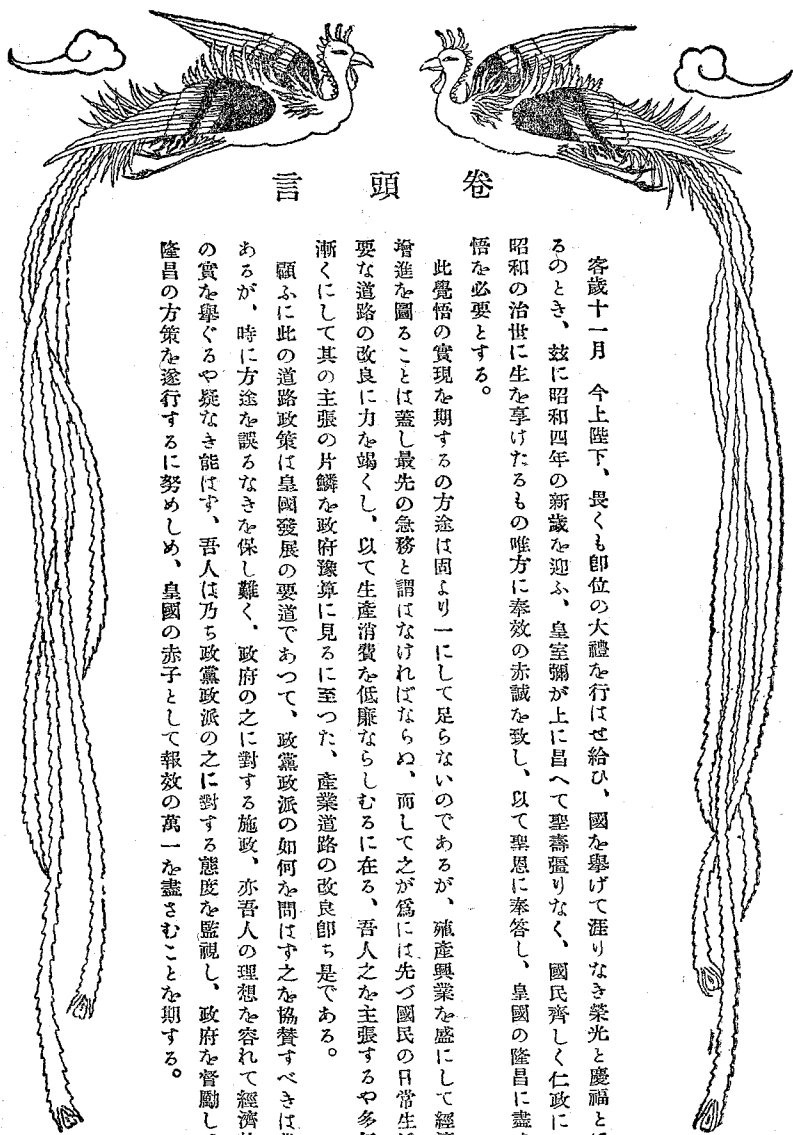 卷頭言
客歲十一月　今上陛下、畏くも卽位の大禮を行はせ給ひ、國を擧げて涯りなき榮光と慶福と
るのとき、玆に昭和四年の新歲を迎ふ、皇室彌が上に昌へて聖壽彊りなく、國民齊しく仁政に
昭和の治世に生を享けたるもの唯方に奉效の赤誠を致し、以て聖恩に奉答し、皇國の隆昌に盡
悟を必要とする。
此覺悟の實現を期するの方途は固より一にして足らないのであるが、殖產興業を盛にして經濟
增進を圖ることは蓋し最先の急務と謂はなければならぬ、而して之が爲には先づ國民の日常生活
要な道路の改良に力を竭くし、以て生產消費を低廉ならしむるに在る、吾人之を主張するや多年
漸くにして其の主張の片鱗を政府豫算に見るに至つた、產業道路の改良卽ち是である。
顧ふに此の道路政策は皇國發展の要道であつて、政黨政派の如何を問はず之を協賛すべきは
あるが、時に方途を誤るなきを保し難く、政府の之に對する施政、亦吾人の理想を容れて經濟
の實を擧ぐるや疑なき能はず、吾人は乃ち政黨政派の之に對する態度を監視し、政府を督勵し
隆昌の方策を遂行するに努めしめ、皇國の赤子として報效の萬一を盡さむことを期する。